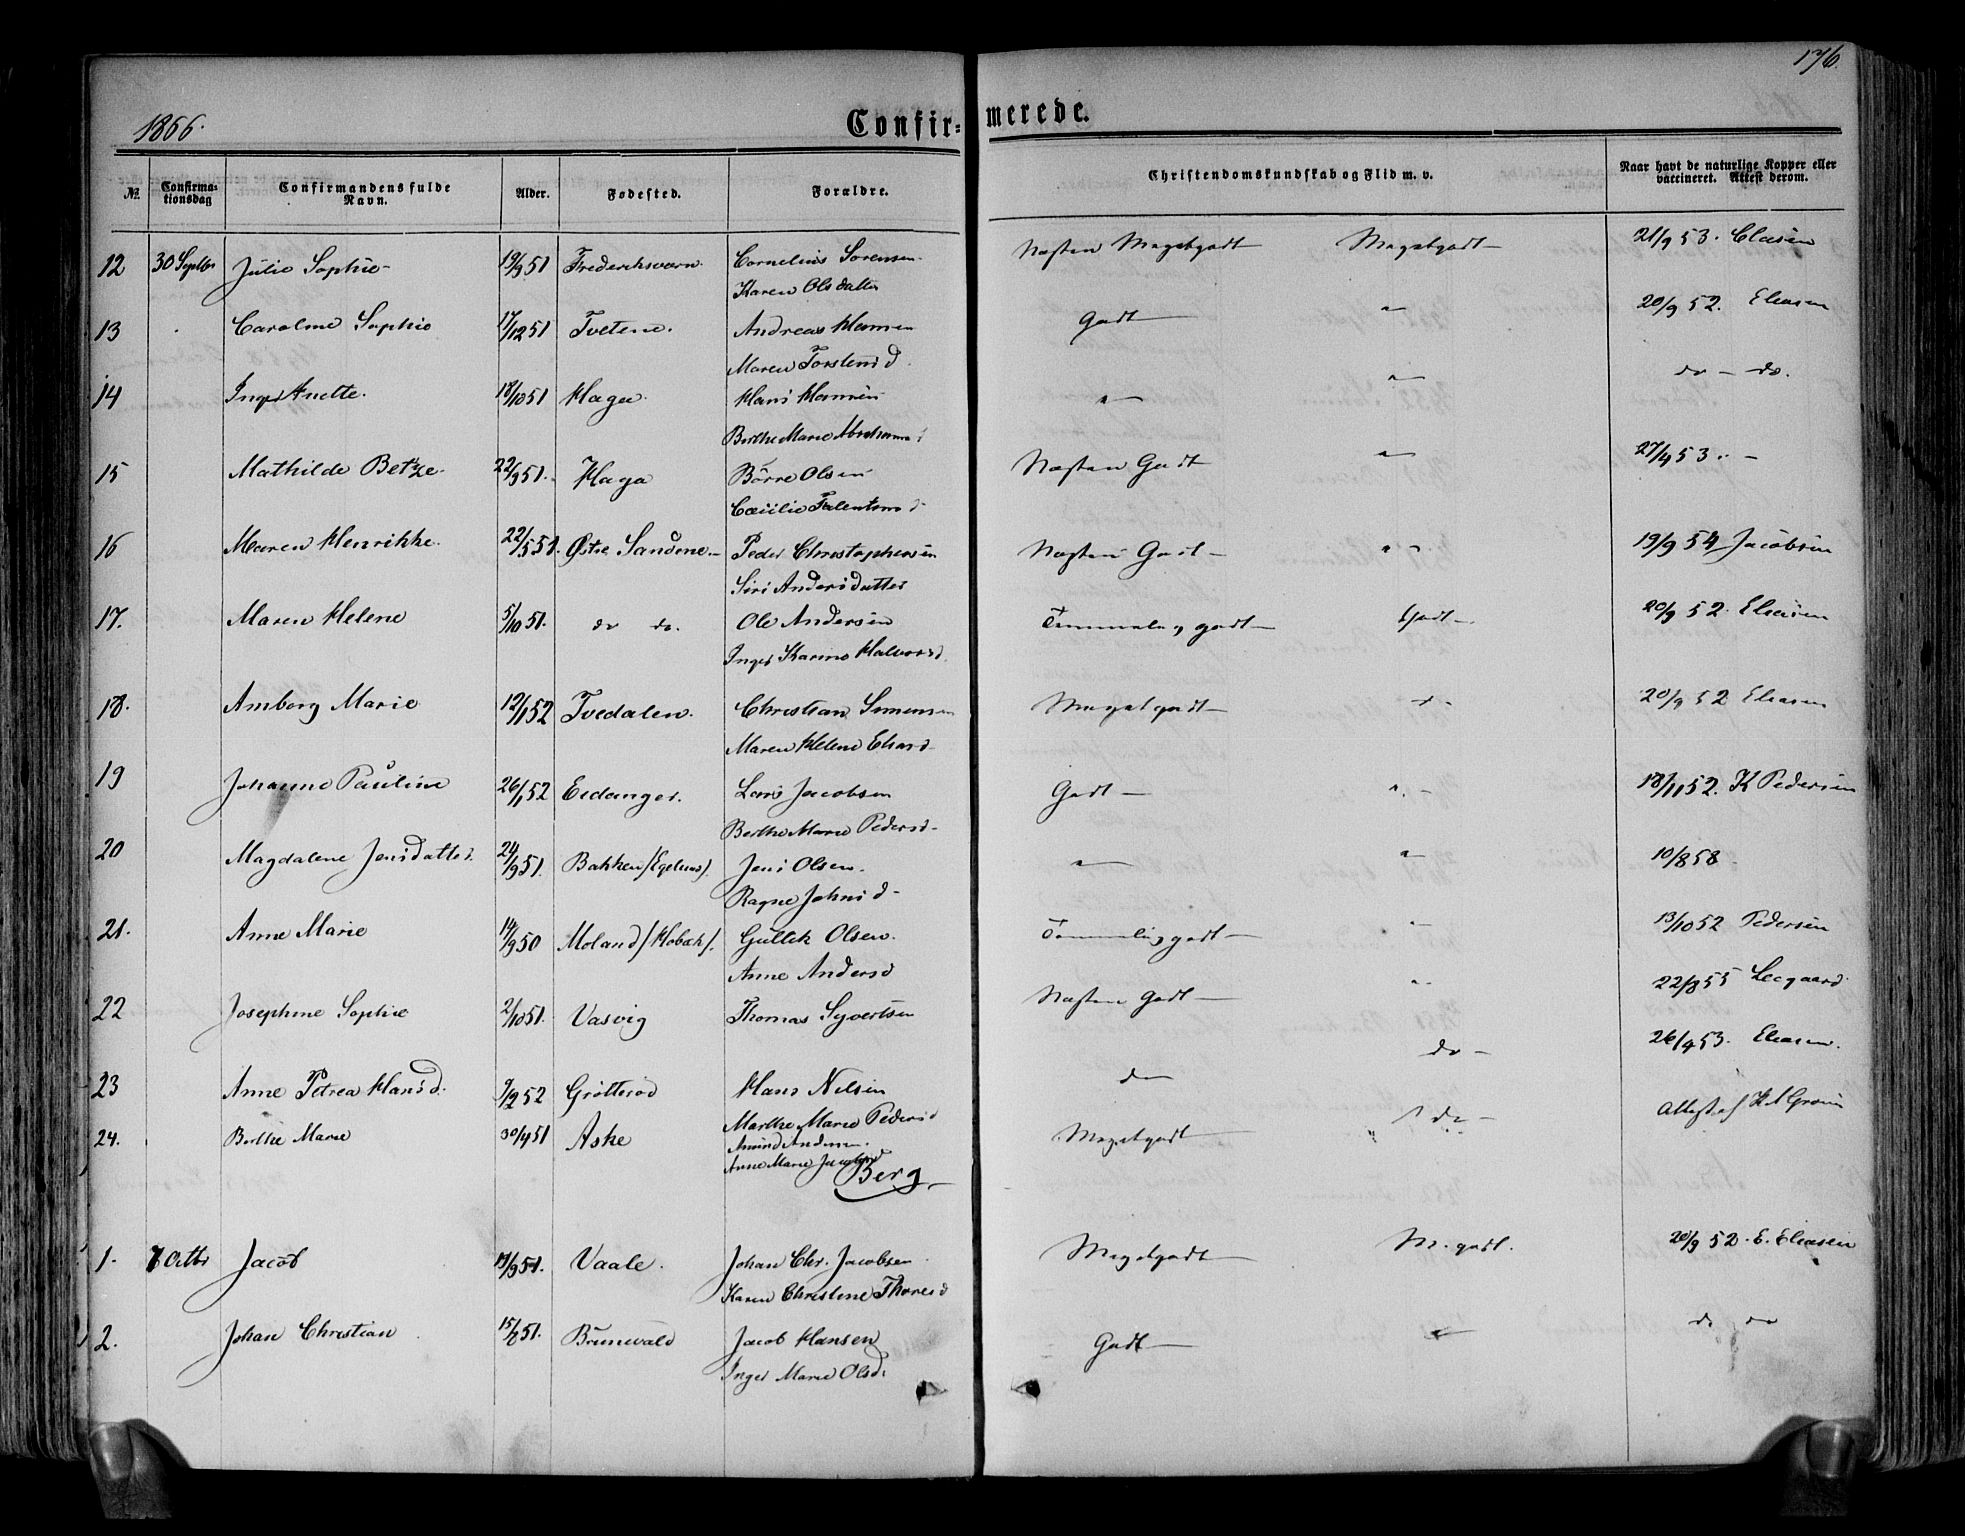 176.
1866.
Confir= merede.
№ Confirma-tionsdag Confirmandens fulde Navn. Alder. Fødested. Forældre. Christendomskundskab og Flid m. v. Naar havt de naturlige Kopper eller vaccineret. Attest derom.
12 30 Septbr Julie Sophie 19/9 51 Frederiksværn Cornelius Sørensen Næsten Megetgodt Megetgodt 21/9 53.
Karen Olsdatter
13 Caroline Sophie 17/12 51 Tvetene. Andreas Hansen Godt " 20/9 52. Eleasen
Maren Torstensd.
14 Inger Anette. 18/10 51 Haga. Hans Hansen " " do - do.
Berthe Marie Abrahamsd
15 Mathilde Betze. 22/9 51. Haga Börre Olsen Næsten Godt " 27/4 53. -
16 Maren Henrikke. 22/5 51. Østre Sandene Peder Christophersen Næsten Godt " 19/9 54 Jacobsen
Siri Andersdatter
17. Maren Helene 5/10 51. do do. Ole Andersen Temmelig godt Godt 20/9 52. Eleasen
Inger Karine Halvorsd.
18. Amborg Marie 12/1 52 Tvedalen. Christian Simensen Megetgodt " 20/9 52 Eleasen
Maren Helene Eliasd
19 Johanne Pauline 26/1 52 Eidanger. Lars Jacobsen Godt " 18/11 52. K Pedersen
Berthe Marie Pedersd
20 Magdalene Jensdatter. 24/9 51. Bakken Jens Olsen. " " 10/8 58
Ragne Johnsd
21. Anne Marie 14/9 50 Moland /Hobæk/. Gullik Olsen. Temmelig godt " 13/10 52 Pedersen
Anne Andersd
22 Josephine Sophie 2/10 51. Vasvig Thomas Syvertsen Næsten Godt " 22/8 55 Leegaard
do 26/4 53. Eleasen.
23 Anne Petrea Hansd. 9/2 52 Gröttesöd Hans Nilsen do
Marthe Marie Pedersd do Attest af
24. Berthe Marie 30/4 51 Aske Amund Andersen. Megetgodt
Anne Marie Jacobsd
Berg
1. 7 Octbr Jacob 19/9 51. Vaale. Johan Chr. Jacobsen Megetgodt M. godt. 20/9 52. E. Eleasen
Karen Christine Thoresd
2. Johan Christian 15/8 51. Brunevald Jacob Hansen Godt " do do
Inger Marie Olsd.